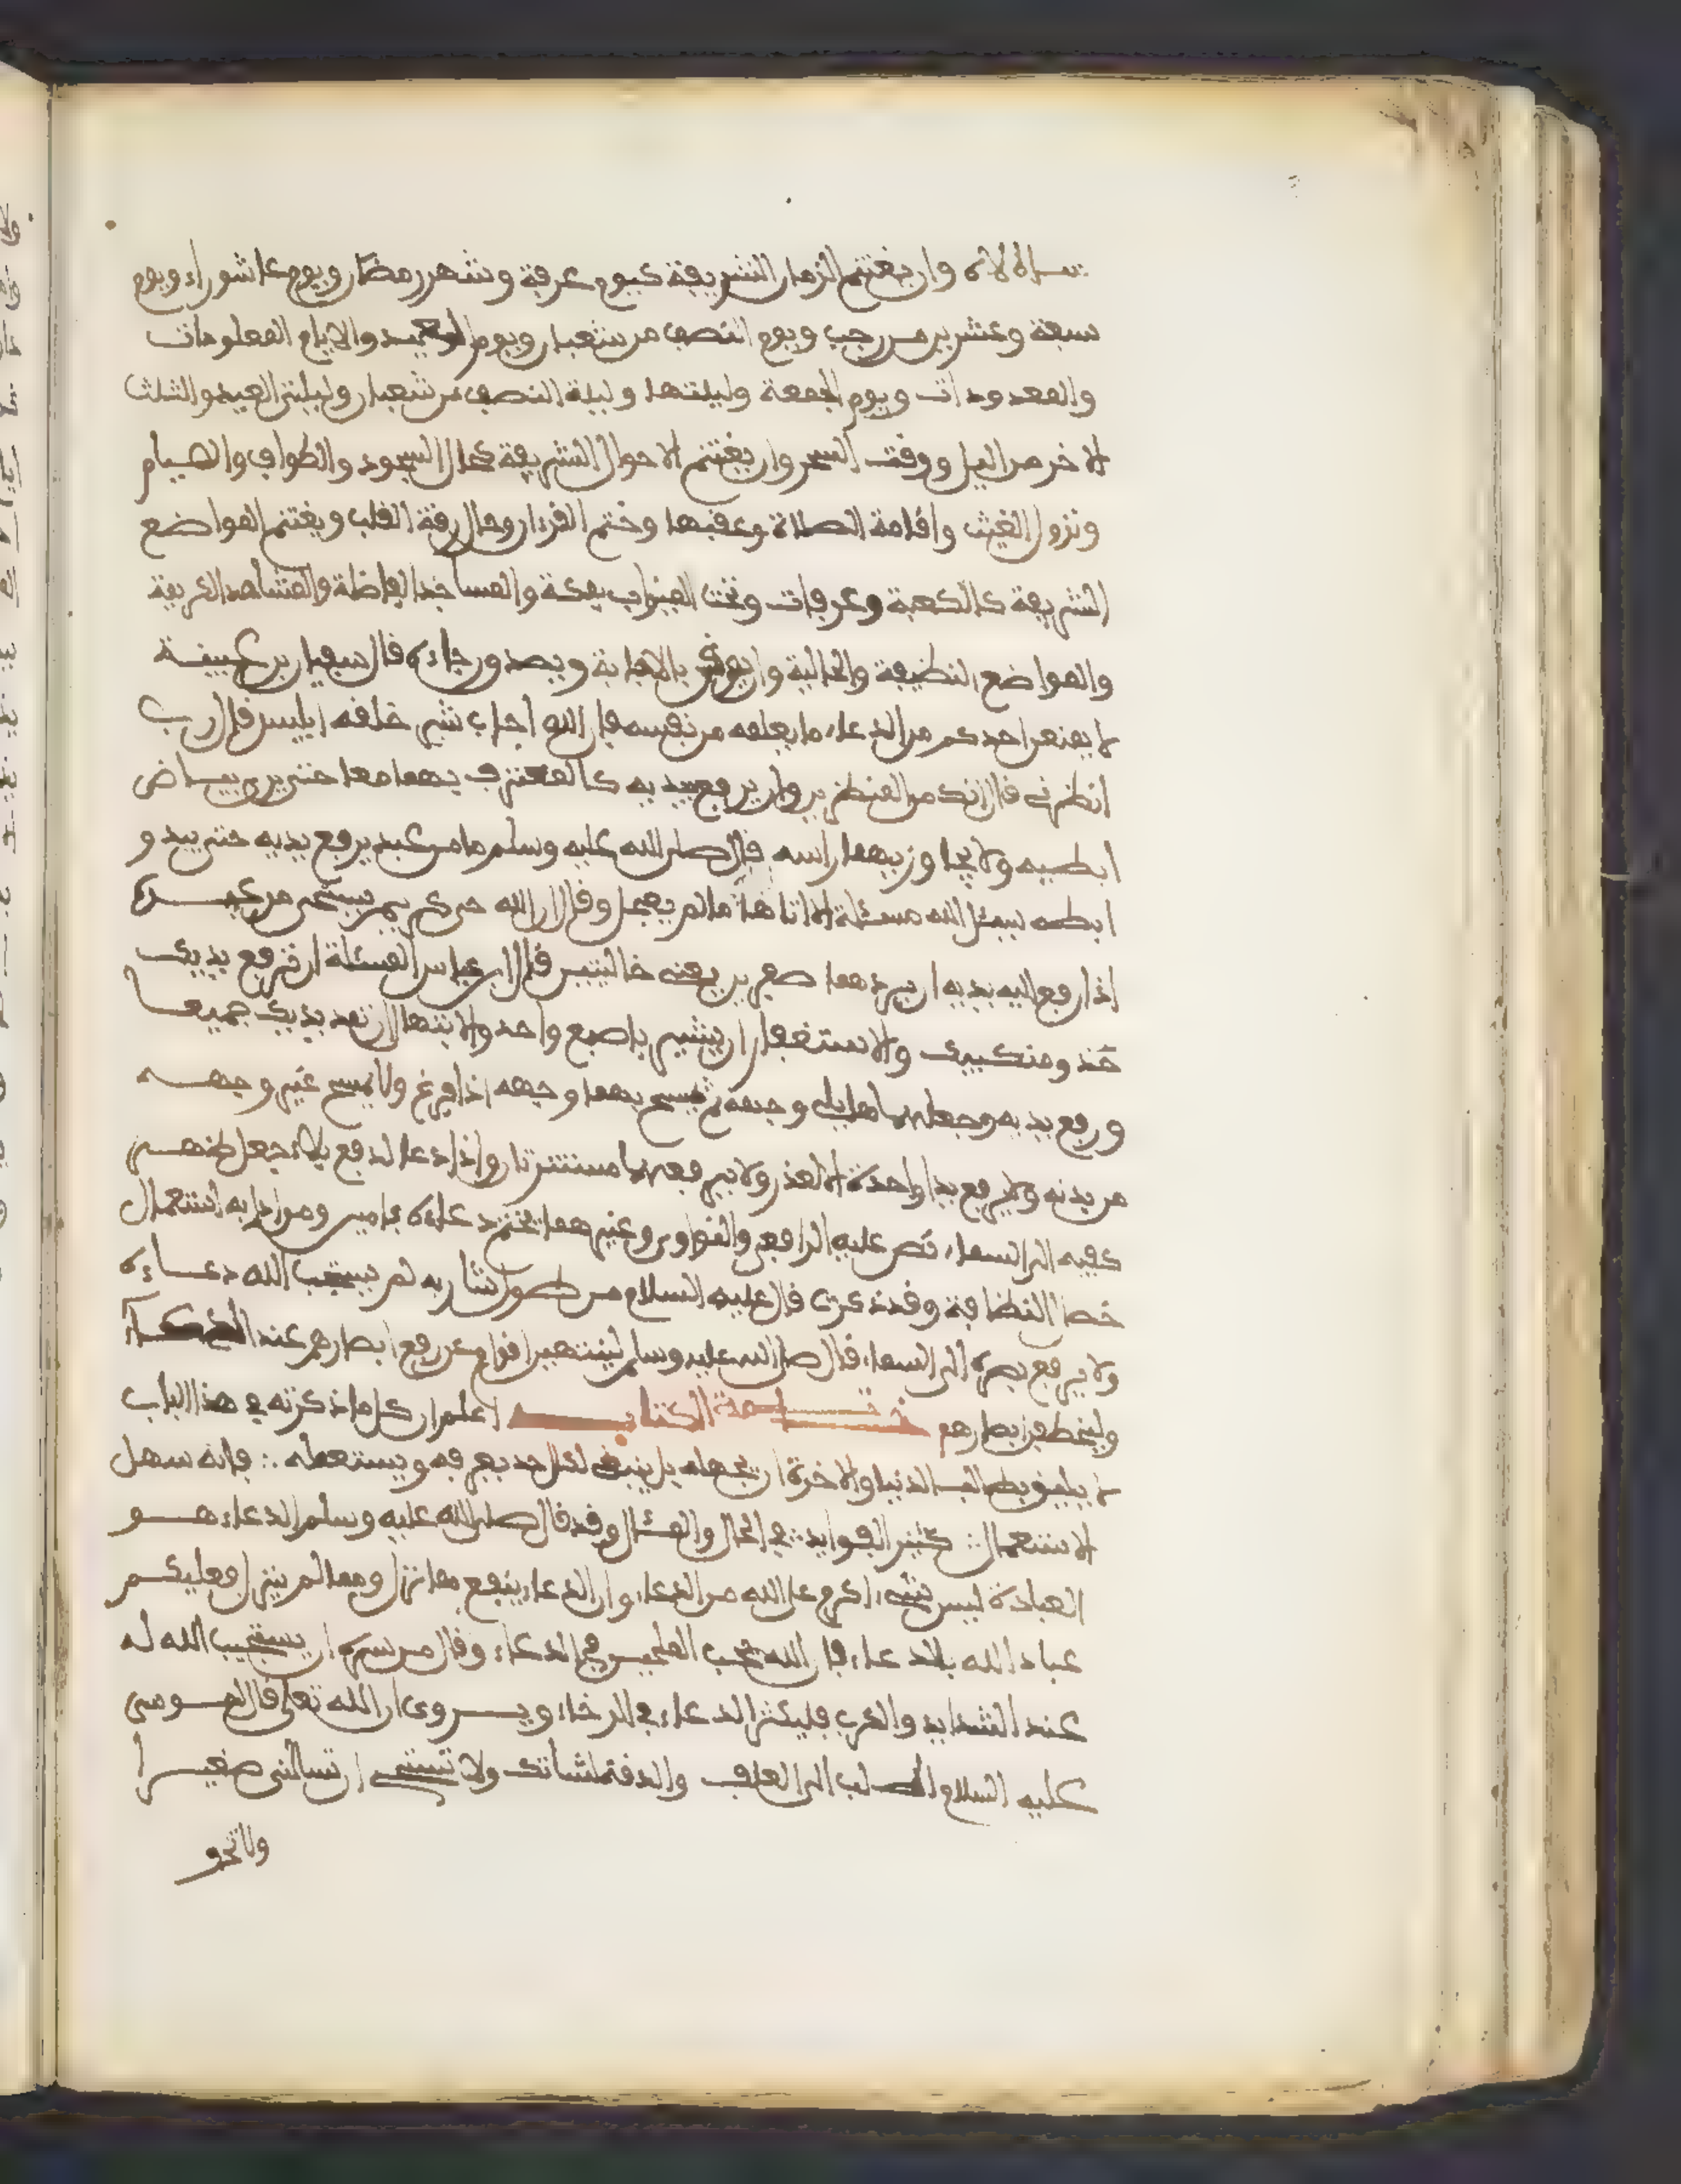 وان يغتنم الازمان الشريفة كيوم عرفة وشهر رمضان ويوم عاشوراء ويوم
سبعة وعشرين من رجب ويوم النصف من شعبان ويوم العيد والايام المعلومات
والمعدودات ويوم الجمعة وليلتها وليلة النصف من شعبان وليلتي العيد والثلث
الاخر من اليل ووقت السحر وان يغتنم الاحوال الشريفة كحال السجود والطواف والصيام
ونزول الغيث واقامة الصلاة وعقبها وختم القرءان وحال رقة القلب ويغتنم المواضع
الشريفة كالكعبة وعرفات وتحت الميزاب بمكة والمساجد الفاضلة والمشاهد الكريمة
والمواضع النظيفة والخالية وان يوقن بالاجابة ويصد ورجاءه قال سفيان بن عيينة
لا يمنعن احدكم من الدعاء ما يعلمه من نفسه فان الله اجاب شر خلقه ابليس قال رب
انظرني قال انك من المنظرين وان يرفع يديه كالمغترف بهما معا حتى يرى بياض
ابطيه ولا يجاوز بهما راسه قال صلى الله عليه وسلم ما من عبد يرفع يديه حتى يبدو
ابطه يسئل الله مسئلة الا اتاها ما لم يعجل وقال ان الله حي كريم يستحي من عبده
اذا رفع اليه يديه ان يردهما صفرين يعني خاليتين قال ابن عباس المسئلة ان ترفع يديك
حذو منكبيك والاستغفار ان يشير باصبع واحد والابتهال ان تمد يديك جميعا
ورفع يديه وجعلهما مما يلي وجهه ثم يمسح بهما وجهه اذا فرغ ولا يمسح غير وجهه
من بدنه ولا يرفع يدا واحدة الا لعذر ولا يرفعهما مستترتان واذا دعا لدفع بلاء جعل ظهر
كفيه الى السماء نص عليه الرافعي والنواوي وغيرهما يختم دعاءه بامين ومن ادابه استعمال
خصال النظافة وقد ذكرت قال عليه السلام من طول شاربه لم يستجب الله دعاءه
ولا يرفع بصره الى السماء قال صلى الله عليه وسلم لينتهين اقوام عن رفع ابصارهم عند الدعاء
وليخطفن ابصارهم خاتمة الكتاب اعلم ان كل ما ذكرته في هذا الباب
لا يليق بطالب الدنيا والاخرة ان يجهله بل ينبغي لكل احد يعرفه ويستعمله فانه سهل
الاستعمال كثير الفوايد في الحال والمئال وقد قال صلى الله عليه وسلم الدعاء هو
العبادة ليس شيء اكرم على الله من الدعاء وان الدعاء ينفع مما نزل ومما لم ينزل فعليكم
عباد الله بالدعاء فان الله يحب الملحين في الدعاء وقال من سره ان يستجيب الله له
عند الشدايد والكرب فليكثر الدعاء في الرخاء ويروى ان الله تعلى قال لموسى
عليه السلام اطلب الى العلف والدقة لشاتك ولا تستحي ان تسالني صغيرا